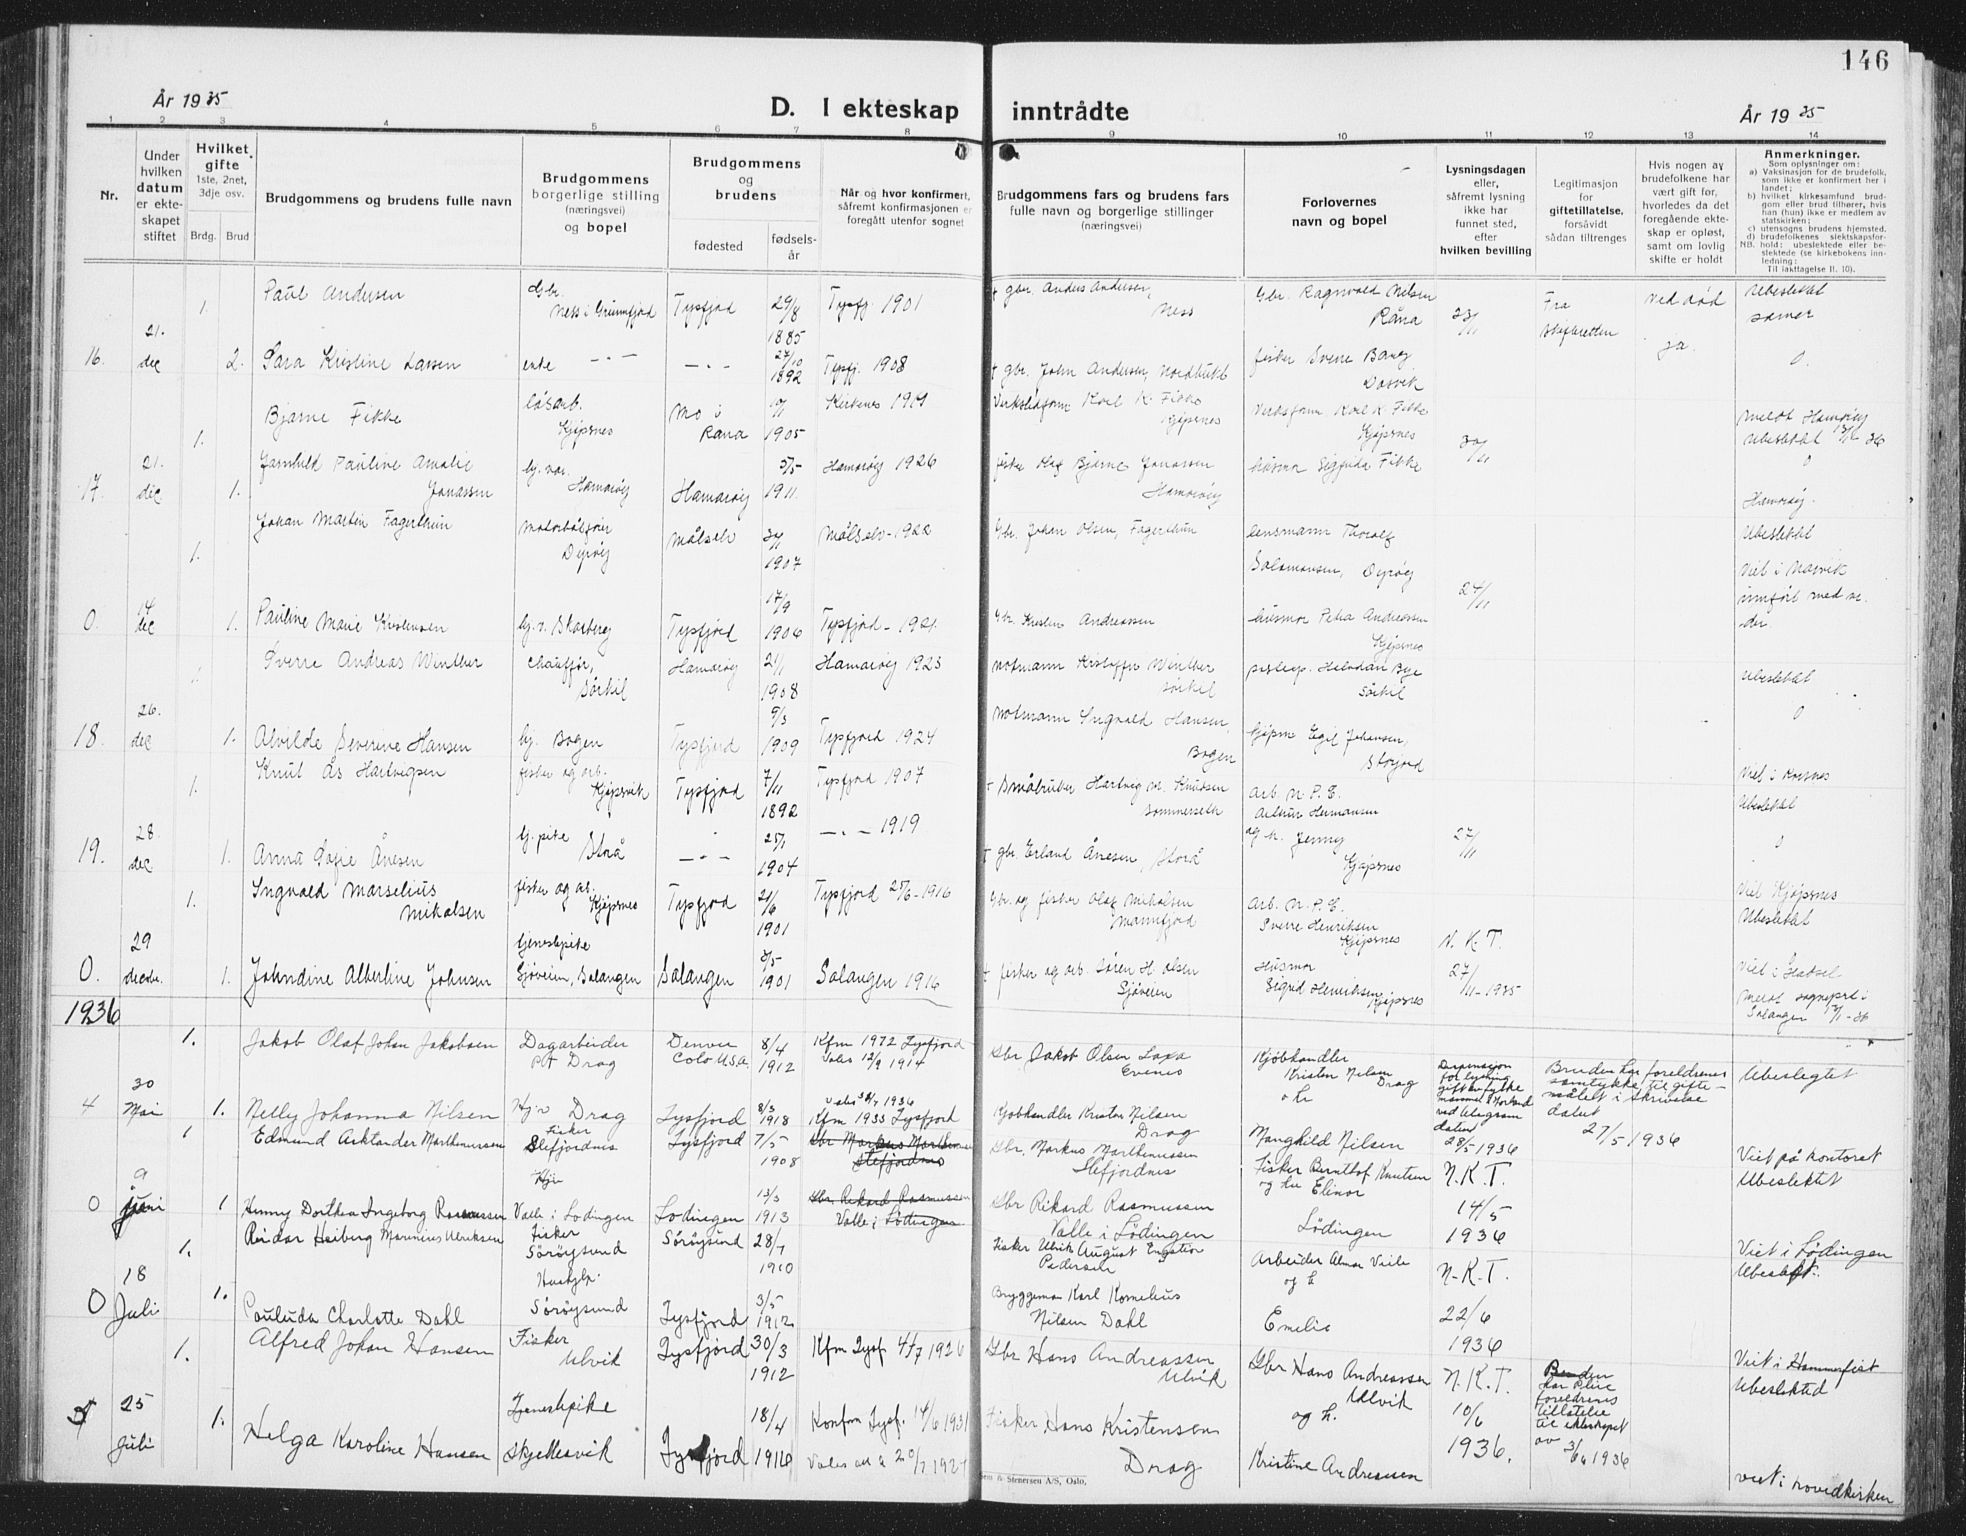 146
År 1935
D. I ekteskap inntrådte
År 1935
1 2 3 4 5 6 7 8 9 10 11 12 13 14
Nr.
Under hvilken datum er ekteskapet stiftet
Hvilket gifte
1ste, 2net, 3dje osv.
Brdg. Brud
Brudgommens og brudens fulle navn
Brudgommens borgerlige stilling (næringsvei) og bopel
Brudgommens og brudens
fødested
fødselsår
Når og hvor konfirmert, såfremt konfirmasjonen er foregått utenfor sognet
Brudgommens fars og brudens fars fulle navn og borgerlige stillinger (næringsvei)
Forlovernes navn og bopel
Lysningsdagen eller, såfremt lysning ikke har funnet sted, efter hvilken bevilling
Legitimasjon for giftetillatelse, forsåvidt sådan tiltrenges
Hvis nogen av brudefolkene har vært gift før, hvorledes da det foregående ekteskap er opløst, samt om lovlig skifte er holdt
Anmerkninger.
Som oplysninger om:
a) Vaksinasjon for de brudefolk, som ikke er konfirmert her i landet;
b) hvilket kirkesamfund brudgom eller brud tilhører, hvis han (hun) ikke er medlem av statskirken;
c) utensogns brudens hjemsted.
d) brudefolkenes slektskapsforhold: ubeslektede eller beslektede (se kirkebokens innledning:
NB. Til iakttagelse II. 10).
1. Paul Andersen Gbr. Ness i Grunnfjord Tysfjord 29/8 1885 Tysfj. 1901 † gbr. Anders Andersen, Ness Gbr. Ragnvald Nilsen Råna 23/11 Fra skifteretten ved død Ubeslektet samer
16. 21. dec 2. Sara Kristine Larsen enke — " — — " — 27/10 1892 Tysfj. 1908 † gbr. John Andersen, Nordbukt fisker Sverre Bang ja. 0.
1. Bjarne Fikke løsarb. Kjøpsnes Mo i Rana 1905 Kirkenes 1919 Karl K. Fikke Kjøpsnes Karl K. Fikke Kjøpsnes 30/11 Meldt Hamarøy Ubeslektet
17. 21. dec 1. Jarnhild Pauline Amalie Jonassen Hj. vær. Hamarøy Hamarøy 5/5 1911. Hamarøy 1926 fisker Olaf Bjarne Jonassen Hamarøy husmor Sigfrida Fikke 0 Hamarøy.
1. Johan Martin Fagerthun Motorbåtfører Dyrøy Målselv 1907 Målselv - 1922 Gbr. Johan Olsen, Fagerthun lensmann Thoralf Salamonsen, Dyrøy 24/11 Ubeslektet Viet i Narvik
0. 14 dec 1. Pauline Marie Kristensen hj. v. Skarberg Tysfjord 17/9 1906 Tysfjord - 1921. Gbr. Kristen Andreassen husmor Petra Andreassen Kjøpsnes innført med
Sverre Andreas Winther Chauffør, Sørkil Hamarøy 21/1 1908 Hamarøy 1923 notmann Kristoffer Winther Sørkil Halvdan Bye Sørkil Ubeslektet
18. 26. dec 1. Alvilde Severine Hansen hj. Bogen Tysfjord 9/3 1909 Tysfjord 1924 notmann Ingvald Hansen, Bogen Egil Johansen, Storjord 0
1. Knut Ås Hartvigsen fisker og arb. Kjøpsvik Tysfjord 7/11 1892 Tysfjord 1907 † Småbruker Hartvig M. Knudsen Sommerseth arb. N. P. C. Arthur Hermansen Viet i Korsnes Ubeslektet
19. 28. dec 1. Anna Sofie Ånesen hj. pike Storå — " — 25/1 1904 — " — 1919 † gbr. Erland Ånesen, Storå og h. Jenny Kjøpsnes 27/11 0
1. Ingvald Marselius Mikalsen fisker og ar. Kjøpsnes Tysfjord 21/6 1901 Tysfjord 25/6-1916 Gbr. og fisker Olaf Mikalsen Mannfjord arb. N. P. C. Sverre Henriksen Kjøpsnes N. K. T. Viet Kjøpsnes Ubeslektet
0. 29 decbr. 1. Johndine Albertine Johnsen tjenestepike Sjøveien, Salangen Salangen 1901 Salangen 1916 † fisker og arb. Søren H. Olsen Sjøveien Husmor Sigrid Henriksen Kjøpsnes 27/11-1935 Viet i Hadsel Meldt sogneprst i Salangen
1936
1. Jakob Olaf Johan Jakobsen Dagarbeider på Drag Denver Colo U.S.A. 8/4 1912 Kfm 1972 Tysfjord 12/9 1914 Gbr Jakob Olsen Laxa Evenes Kjøbhandler Kristen Nilsen Drag o hu Dispensasjon for lysning Bruden har foreldrenes samtykke til giftemålet i skrivelse datert 27/5 1936 Ubeslegtet
4 30 Mai 1. Nelly Johanna Nilsen Hj.v Drag Tysfjord 8/3 1918 Kfm 1933 Tysfjord Kjøbhandler Kristen Nilsen Drag ved telegram datert 28/5 1936
1 Edmund Arktander Marthinussen Fisker Stefjordnes Tysfjord 7/5 1908 Gbr Markus Marthinussen Stefjordnes Gbr. Markus Marthinussen Stefjordnes Manghild Nilsen Fisker Bernthof Knutsen og hu Elinor N.K.T. Viet på kontoret Ubeslektet
0 9 juni 1 Henny Dorthea Ingeborg Rasmussen Hjv Valle i Lødingen Lødingen 13/3 1913 Gbr Rikard Rasmussen Valle i Lødingen Gbr Rikard Rasmussen Valle i Lødingen Lødingen 14/5 1936 Viet i Lødingen
1. Reidar Heiberg Marinius Ulriksen Fisker Sørøysund Sørøysund 28/7 1910 Fisker Ulrik August Pedersen Arbeider Almar Veile og h N.K.T. Ubeslekt.
0 18 Juli 1. Paulúda Charlotte Dahl Sørøysund Tysfjord 3/5 1912 Bryggeman Karl Kornelius Nilsen Dahl Emelie 22/6 1936 Viet i Hammerfest
1. Alfred Johan Hansen Fisker Ulvik Tysfjord 30/3 1912 Kfm Tysf 4/7 1926 Gbr Hans Andreassen Ulvik Gbr Hans Andreassen Ulvik og h. N.K.T. Bruden har sine foreldrenes tillatelse til ekteskapet av 3/6 1936 Ubeslekted
5 25 Juli 1. Helga Karoline Hansen Tjenestepike Skjellesvik Tysfjord 18/4 1916 Konfm Tysf. 14/6 1931 Fisker Hans Kristensen Drag Kristine Andreassen 10/6 1936. Viet i hovedkirken
& Stenersen A/S, Oslo.